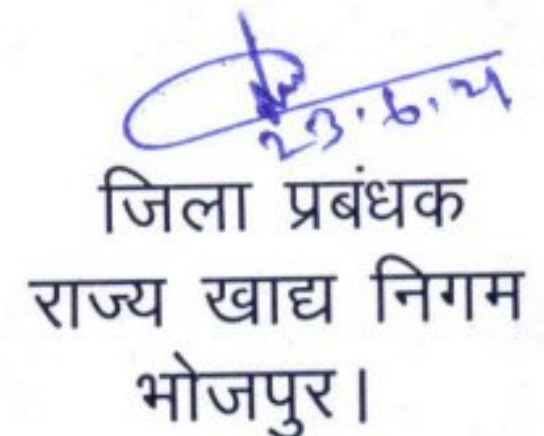 23.6.21
जिला प्रबंधक
राज्य खाद्य निगम
भोजपुर।